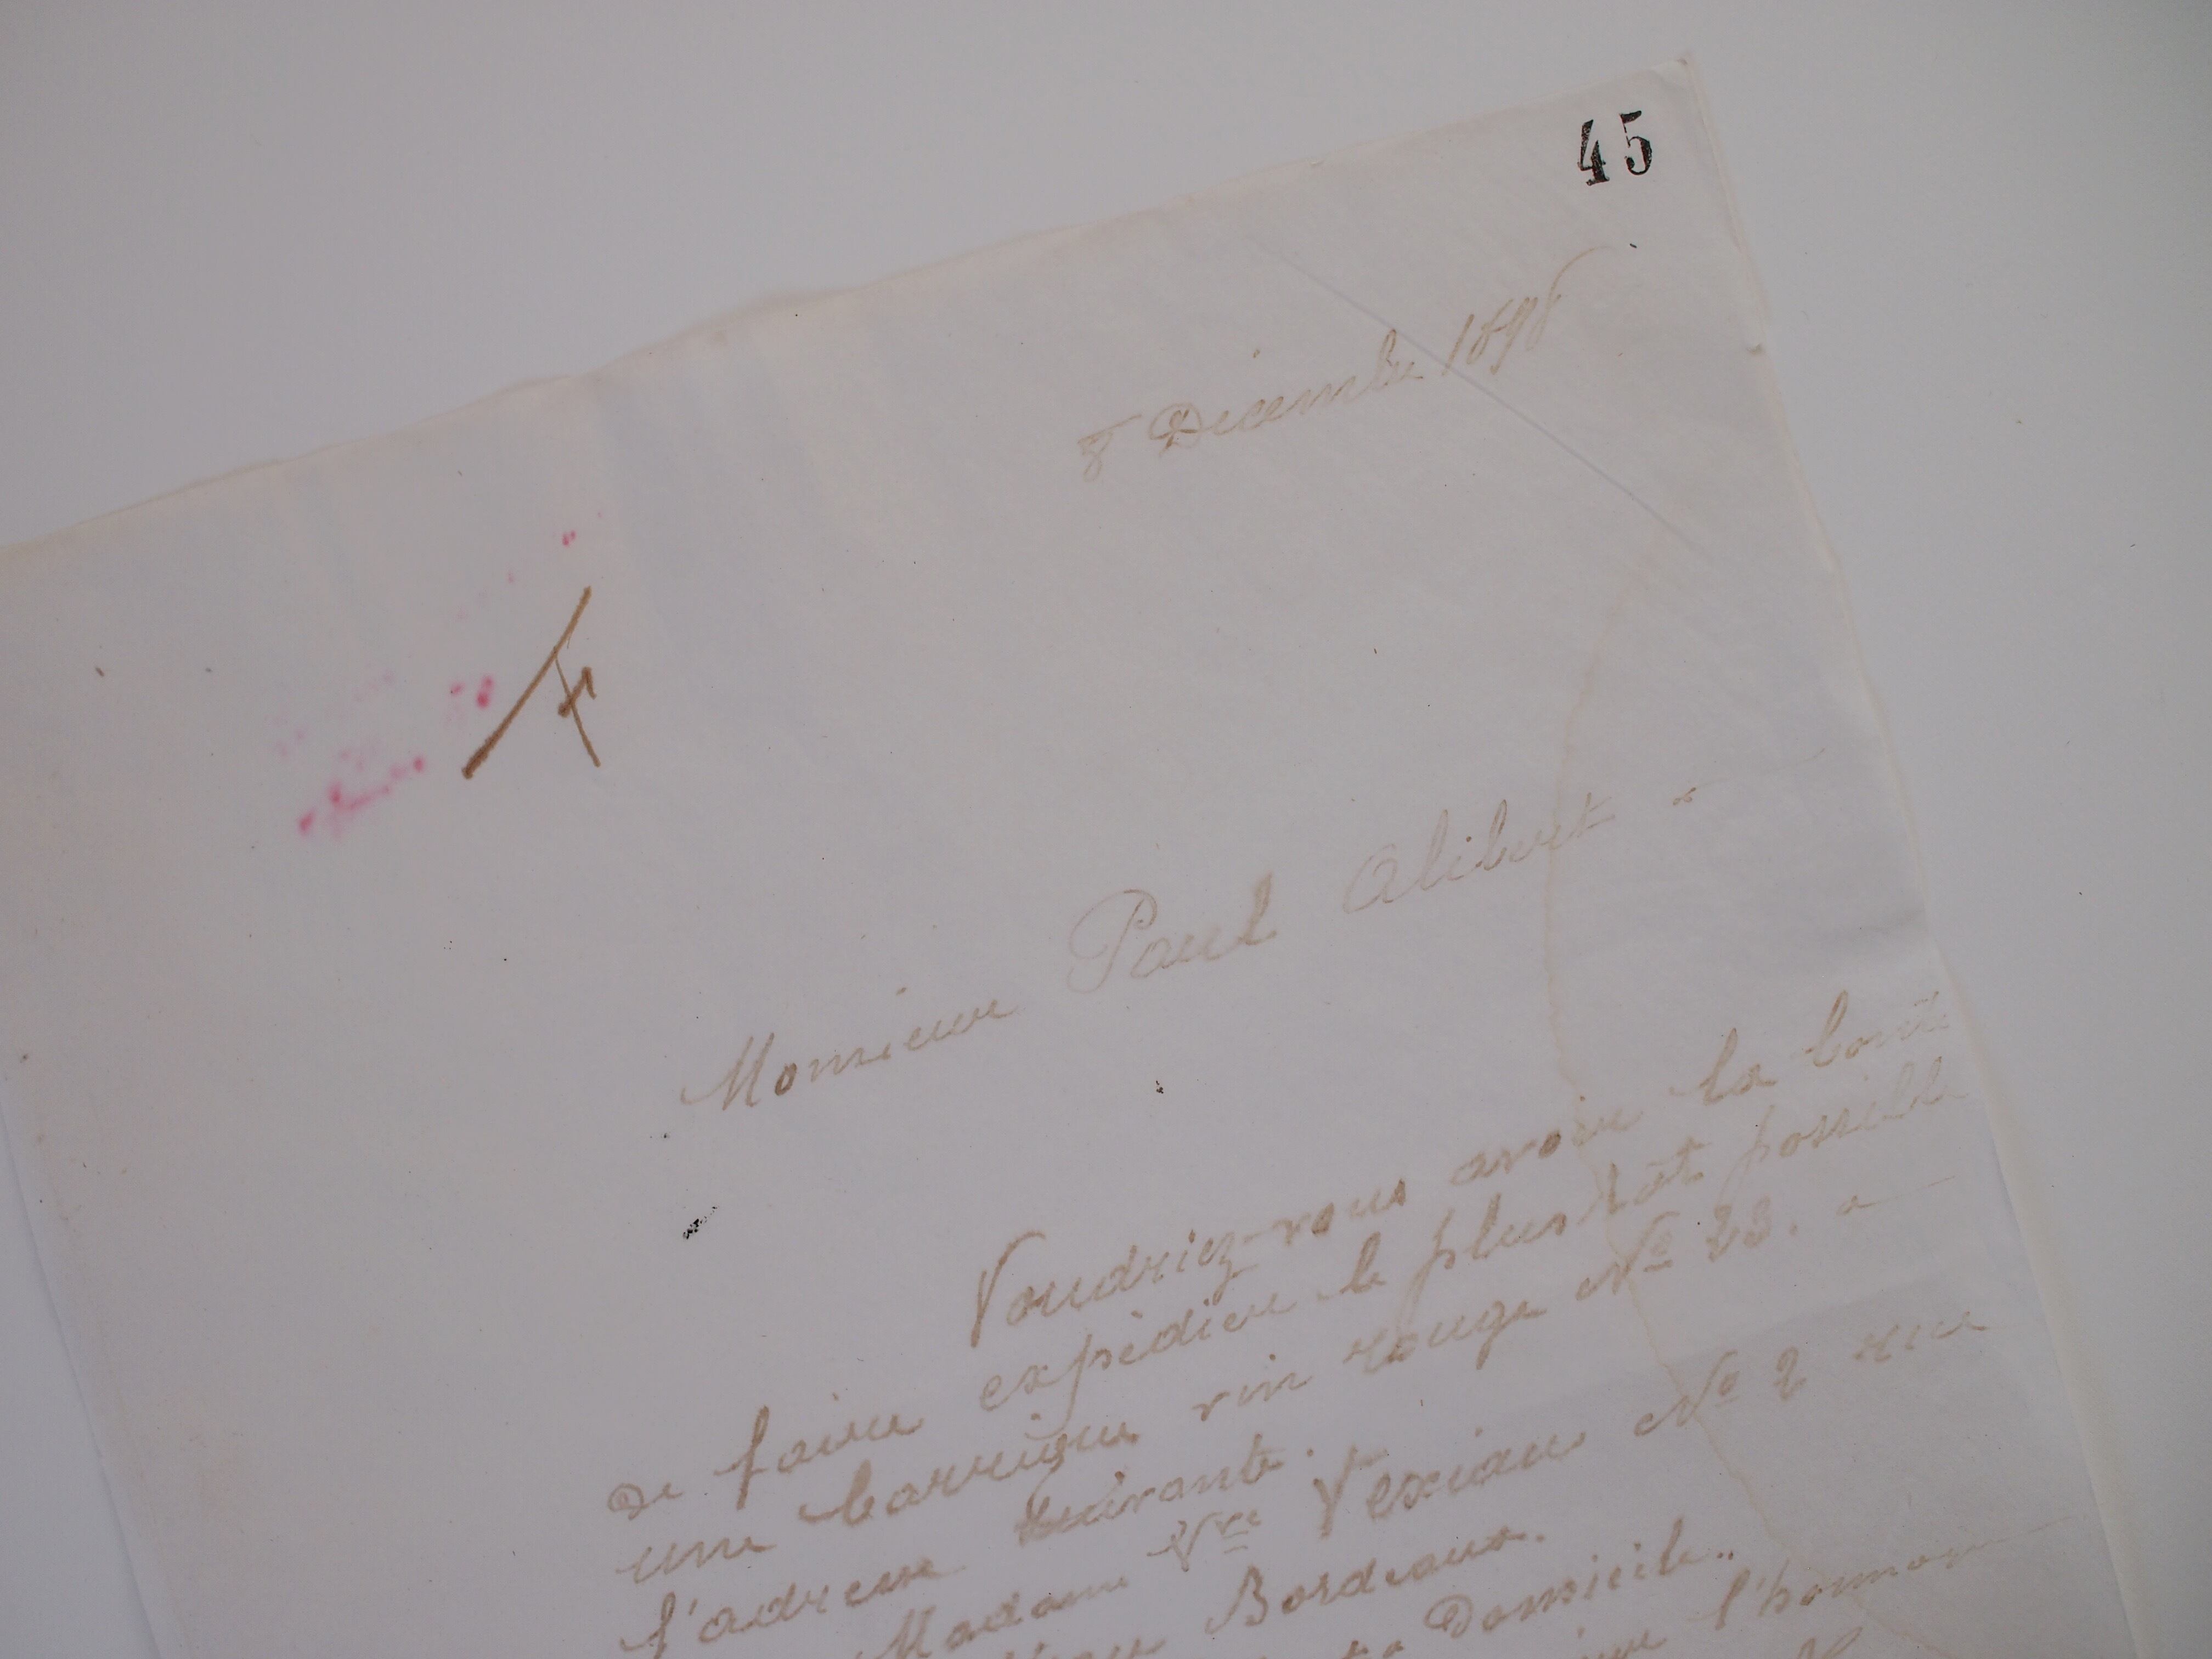 45
8 Décembre 1898
Monsieur Paul Alibert -
Voudriez-vous avoir la bonté
de faire expédier le plus tôt possible
une barrique vin rouge No 23. a
l'adresse suivante.
Madame Vve Vexiau No 2 rue
Bordeaux.
Domicile..
l'honneur